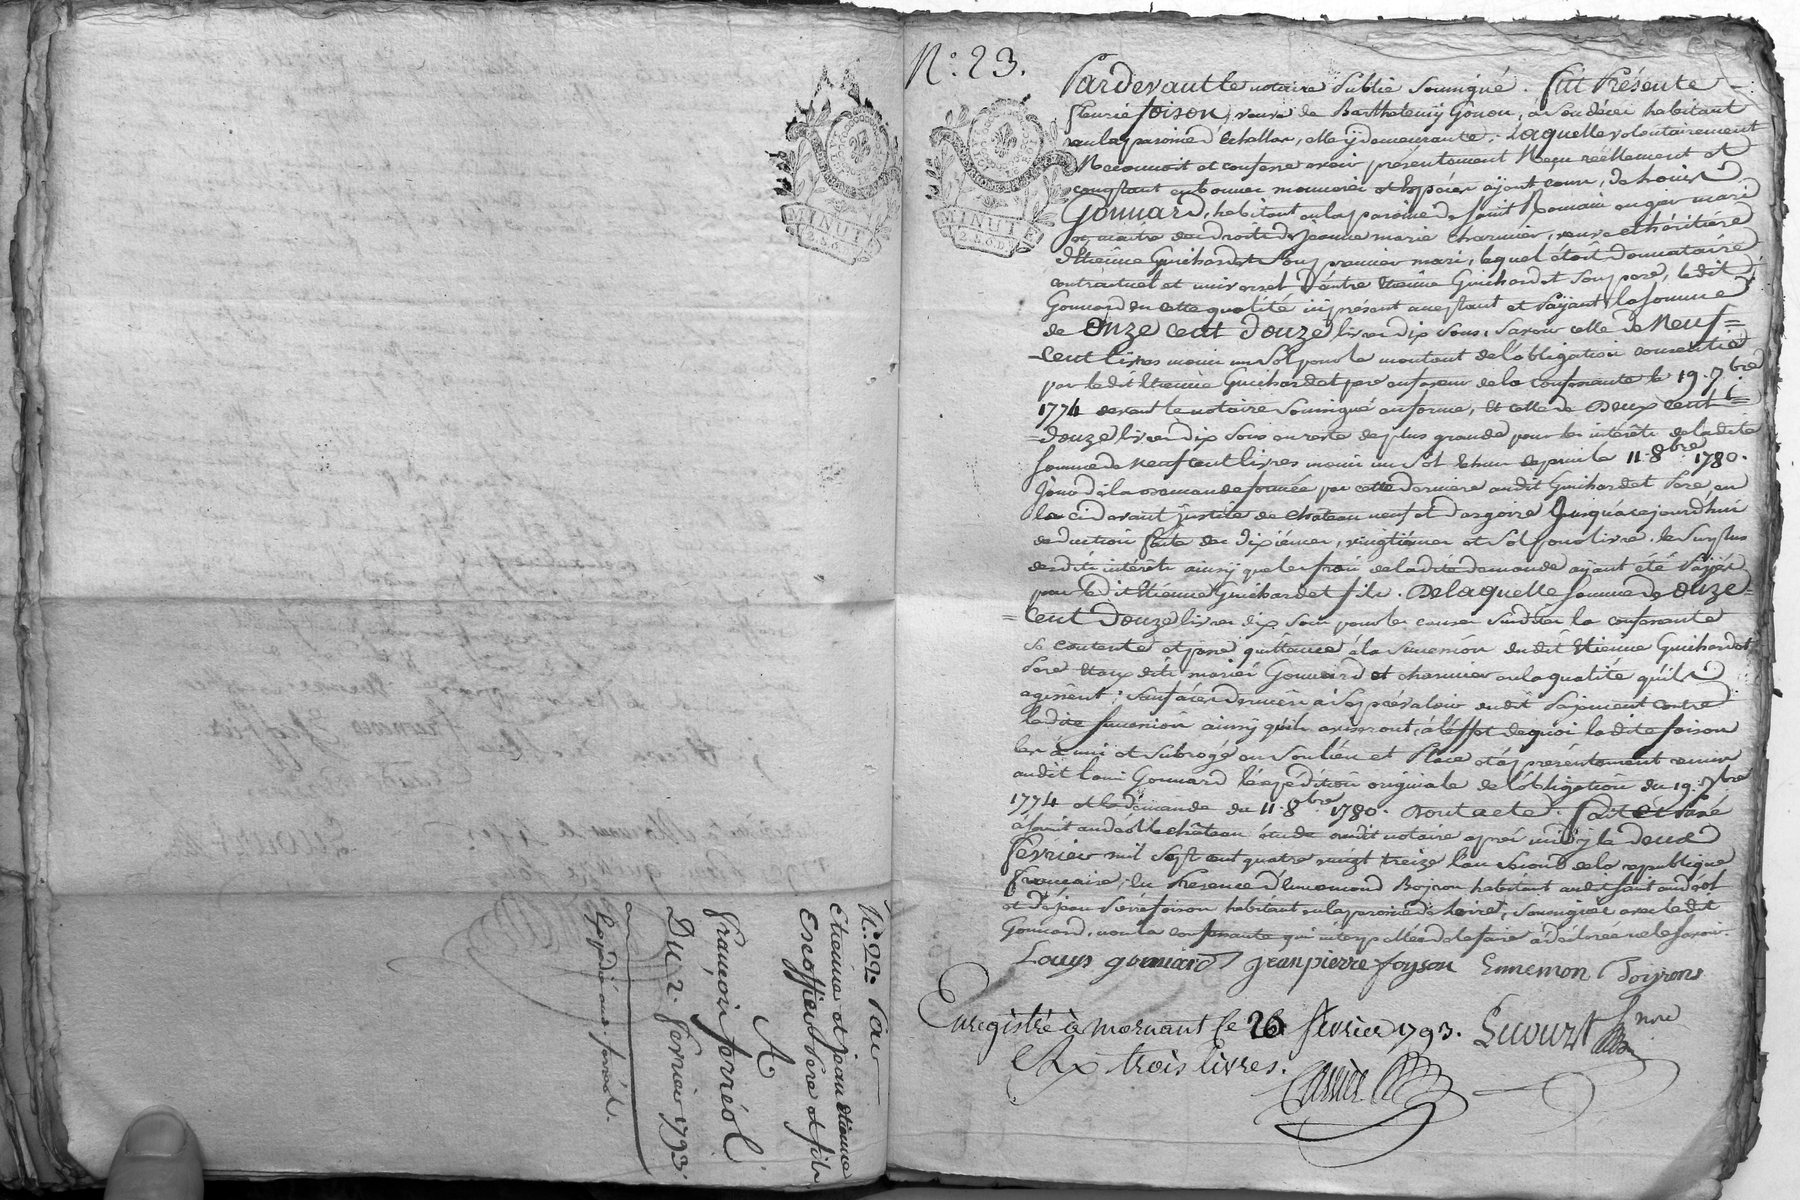 N.° 22. Par
Etienne et jean Etienne
Escoffier Pere et fils
A
François ferréol
Du 2. fevrier 1793.
Expedié aud. ferréol.
N.° 23.
MINUTE
2 S. 6 D.
MINUTE
2 S. 6 D.
Pardevant le notaire Public soussigné. fut Présente
fleurie foison, veuve de Barthelemÿ Gonon, à son décès habitant
en la paroisse d'échallas, elle ÿ demeurante. Laquelle volontairement
Reconnoit et confesse avoir présentement Reçu réellement et
comptant en bonnes monnoies et Espéces aÿant cours, de Louis
Gonnard, habitant en la paroisse de saint Romain en gier mari
et maitre des droits de Jeanne marie charmier, veuve et héritiére
d'Etienne Guichardet son premier mari, lequel étoit donnataire
contractuel et universel d'autre Etienne Guichardet son pere, le dit
Gonnard en cette qualité icÿ présent acceptant et Païant, la somme
de Onze cent douze livres dix sous, savoir celle de Neuf=
=cent livres moins un sol pour le montant de l'obligation consentie
par le dit Etienne Guichardet pere en faveur de la confessante le 19. 7bre
1774 devant le notaire soussigné en forme, et celle de Deux cent=
=douze livres dix sous en reste de plus grande pour les intérêts de la dite
somme de neuf cent livres moins un sol échus depuis le 11. 8bre 1780.
Jour de la demande formée par cette derniere au dit Guichardet Pere en
la cidevant justice de Chateauneuf et Dargoire Jusqu'à ce jourd'hui
deduction faite des dixiémes, vingtiémes et sol pour livre, le surplus
desdits intérêts ainsÿ que les frais de la dite demande aÿant été Païés
par le dit Etienne Guichardet fils. De laquelle somme de onze=
=cent Douze livres dix sous pour les causes susdites la confessante
se contente et passe quittance à la succession du dit Etienne Guichardet
Pere et aux dits mariés Gonnard et charmier en la qualité qu'ils
agissent; sauf à ces derniers à se prévaloir du dit Païement contre
la dite succession ainsÿ qu'ils aviseront, à l'effet de quoi la dite foison
les à mis et subrogé en son lieu et Place et a présentement remis
au dit Louis Gonnard l'éxpédition originale de l'obligation du 19. 7bre
1774 et la demande du 11. 8bre 1780. Dont acte. fait et Passé
à saint andéol le château étude du dit notaire aprés midÿ le deux
fevrier mil sept cent quatre vingt treize l'an second de la republique
française, en Présence d'Ennemond Boiron habitant au dit saint andéol
et de jean Pierre foison habitant en la paroisse de Loire, soussignés avec le dit
Gonnard, non la confessante qui interpellée de le faire a déclaré ne le savoir.
Louys gonnard jean pierre foyson Ennemon Boyron
Enregistré à mornant le 26 fevrier 1793. Lecourt nore
Rx trois livres.